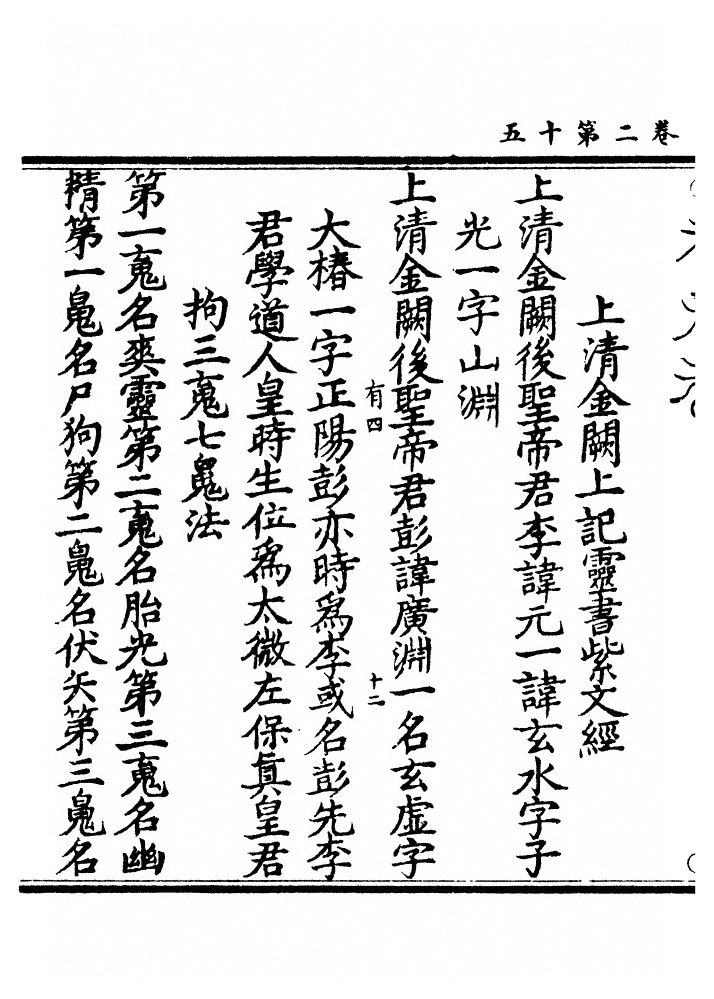 卷二第十五
上清金闕上記靈書紫文經
上清金闕後聖帝君李諱元一諱玄水字子
光一字山淵
上清金闕後聖帝君彭諱廣淵一名玄虛字
有四
十二
大椿一字正陽彭亦時爲李或名彭先李
君學道人皇時生位爲太微左保眞皇君
拘三䰟七魄法
第一䰟名爽靈第二䰟名胎光第三䰟名幽
精第一魄名尸狗第二魄名伏矢第三魄名